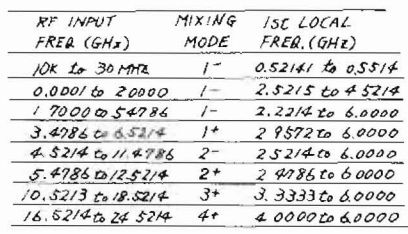 RF INPUT FREQ. (GHz) MIXING MODE 1ST LOCAL FREQ. (GHz)
10K to 30 MHz 1- 0.52141 to 0.5514
0.0001 to 2.0000 1- 2.5215 to 4.5214
1.7000 to 5.4786 1- 2.2214 to 6.0000
3.4786 to 6.5214 1+ 2.9572 to 6.0000
4.5214 to 11.4786 2- 2.5214 to 6.0000
5.4786 to 12.5214 2+ 2.4786 to 6.0000
10.5213 to 18.5214 3+ 3.3333 to 6.0000
16.5214 to 24.5214 4+ 4.0000 to 6.0000